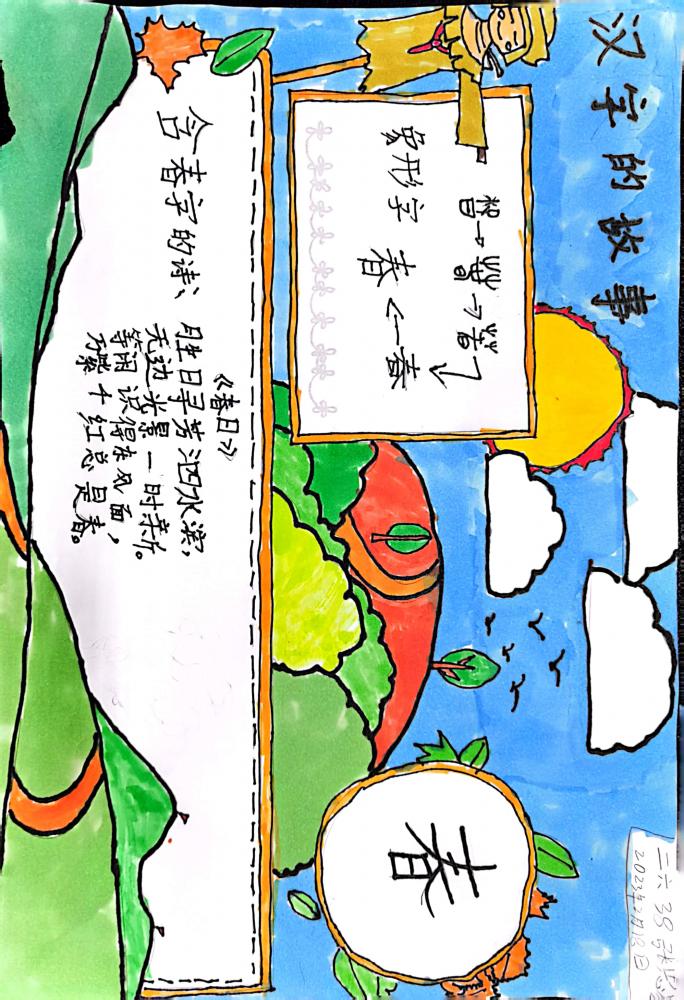 汉字的故事
象形字
春
春
春
含春字的诗:
《春日》
胜日寻芳泗水滨,
无边光景一时新。
等闲识得东风面,
万紫千红总是春。
二六 38